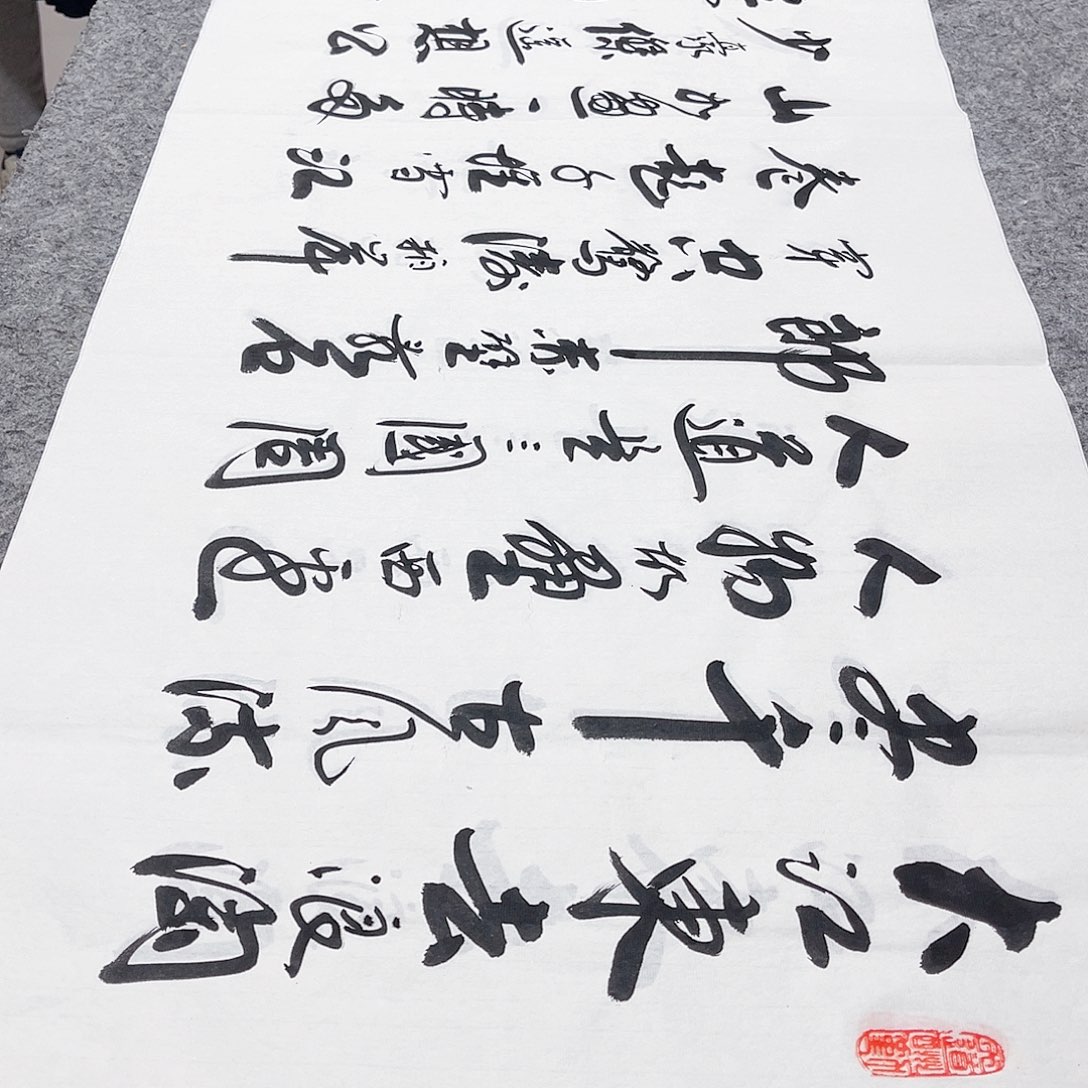 大江東去浪淘
盡千古風流
人物故壘西邊
人道是三國周
郎赤壁亂石
穿空驚濤拍岸
卷起千堆雪江
山如畫一時多
少豪傑遙想公